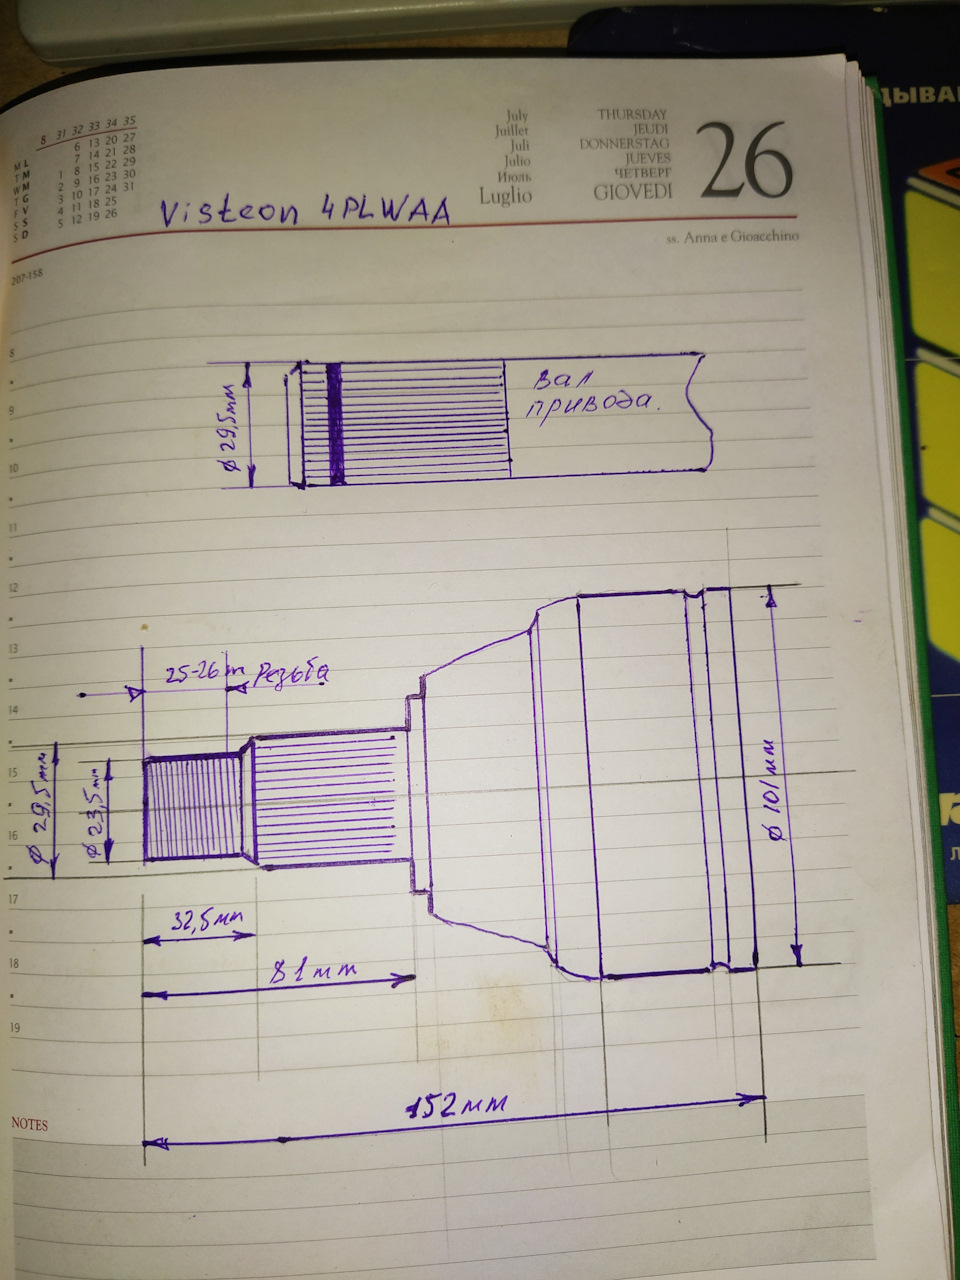 8 31 32 33 34 35
M L 6 13 20 27
T M 7 14 21 28
W M 1 8 15 22 29
T G 2 9 16 23 30
F V 3 10 17 24 31
S S 4 11 18 25
S D 5 12 19 26
July
Juillet
Juli
Julio
Июль
Luglio
THURSDAY
JEUDI
DONNERSTAG
JUEVES
ЧЕТВЕРГ
GIOVEDI
26
Visteon 4PLWAA
ss. Anna e Gioacchino
207-158
8
9
10
11
12
13
14
15
16
17
18
19
ø 29,5мм
вал
привода.
25-26 m Резьба
ø 29,5мм
ø 23,5мм
ø 101мм
32,5мм
81мм
152мм
NOTES